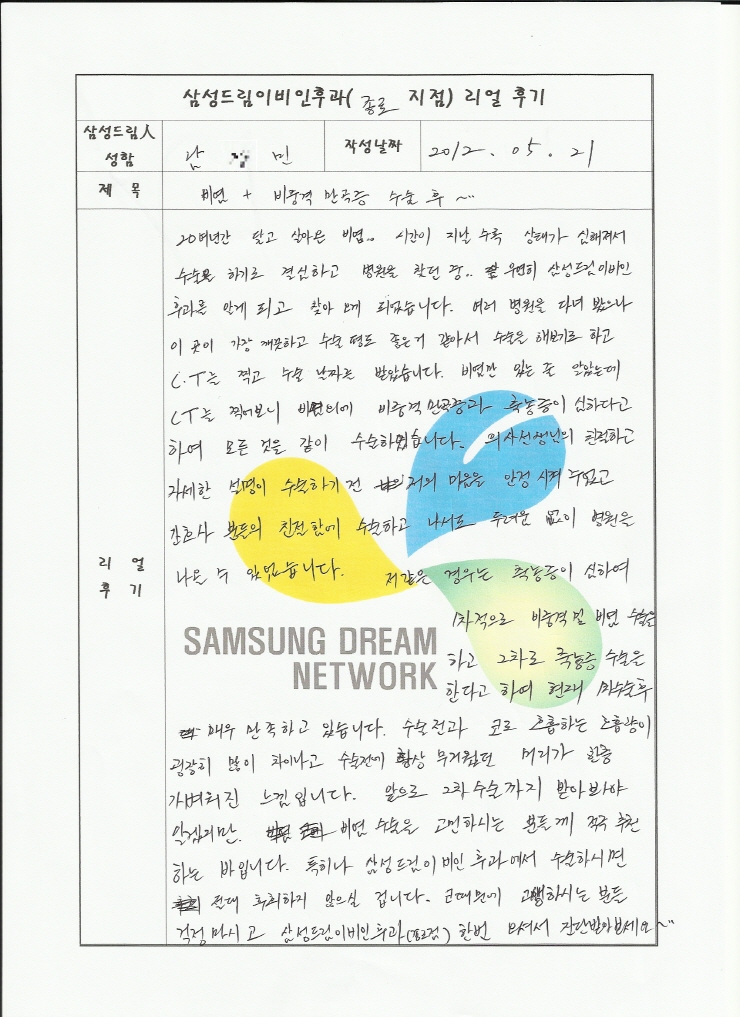 삼성드림이비인후과( 종로 지점) 리얼 후기
삼성드림人 성함
남 민
작성날짜
2012. 05. 21
제 목
비염 + 비중격 만곡증 수술 후 ~
리 얼 후 기
20여년간 달고 살아온 비염.. 시간이 지날 수록 상태가 심해져서
수술을 하기로 결심하고 병원을 찾던 중.. 우연히 삼성드림이비인
후과를 알게 되고 찾아 오게 되었습니다. 여러 병원을 다녀 봤으나
이 곳이 가장 깨끗하고 수술 평도 좋은거 같아서 수술을 해보기로 하고
C.T를 찍고 수술 날짜를 받았습니다. 비염만 있는 줄 알았는데
CT를 찍어보니 비염외에 비중격 만곡증과 축농증이 심하다고
하여 모든 것을 같이 수술하였습니다. 의사선생님의 친절하고
자세한 설명이 수술하기 전 저의 마음을 안정 시켜 주었고
간호사 분들의 친절함에 수술하고 나서도 두려움 없이 병원을
나올 수 있었습니다. 저같은 경우는 축농증이 심하여
1차적으로 비중격 및 비염 수술을
하고 2차로 축농증 수술을
한다고 하여 현재 1차수술후
매우 만족하고 있습니다. 수술전과 코로 호흡하는 호흡량이
굉장히 많이 차이나고 수술전에 항상 무거웠던 머리가 한층
가벼워진 느낌입니다. 앞으로 2차 수술까지 받아봐야
알겠지만. 비염 수술을 고민하시는 분들께 적극 추천
하는 바입니다. 특히나 삼성드림이비인후과에서 수술하시면
절대 후회하지 않으실 겁니다. 코때문에 고생하시는 분들
걱정 마시고 삼성드림이비인후과(종로점) 한번 오셔서 진단받아보세요~
SAMSUNG DREAM
NETWORK